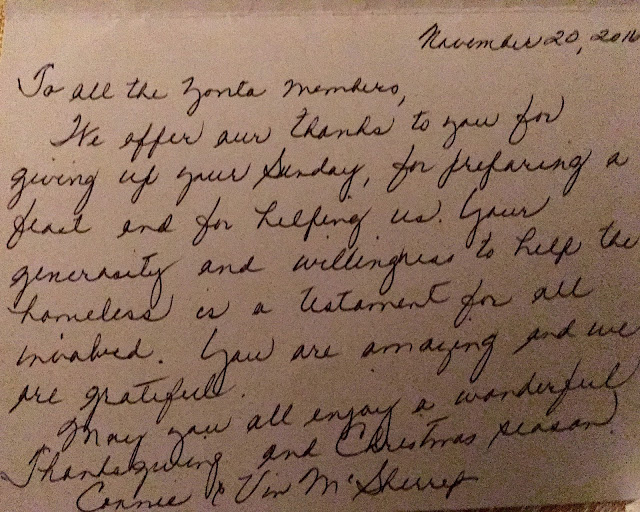 November 20, 2016
To all the Zonta members,
We offer our thanks to you for
giving up your Sunday, for preparing a
feast and for helping us. Your
generosity and willingness to help the
homeless is a testament for all
involved. You are amazing and we
are grateful.
May you all enjoy a wonderful
Thanksgiving and Christmas season.
Connie & Vin McSherry